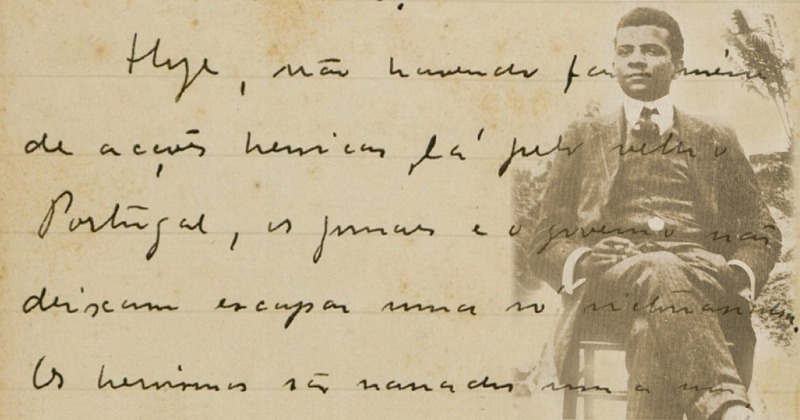 Hoje, não havendo
de acções heroicas, lá pelo velho
Portugal, os jornaes e o governo não
deixam escapar uma só
Os heroismos são narrados um a um,